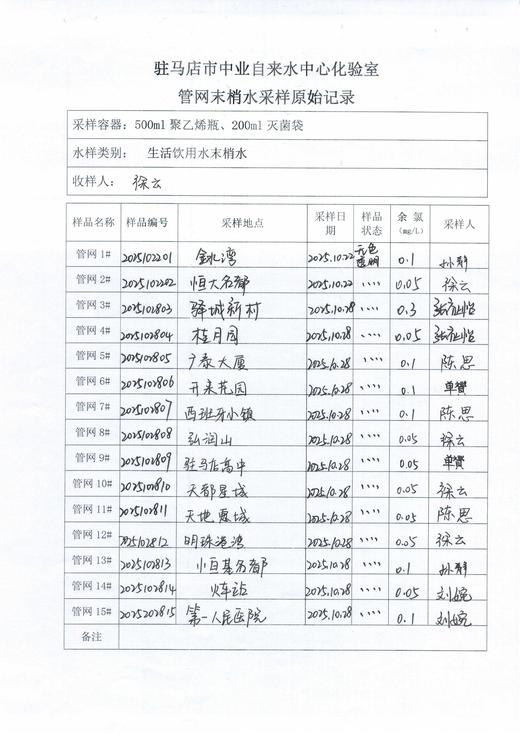 驻马店市中业自来水中心化验室
管网末梢水采样原始记录
采样容器：500ml 聚乙烯瓶、200ml 灭菌袋
水样类别： 生活饮用水末梢水
收样人： 徐云
样品名称 样品编号 采样地点 采样日期 样品状态 余 氯（mg/L） 采样人
管网 1# 2025102201 金水湾 2025.10.22 无色透明 0.1
管网 2# 2025102202 恒大名都 2025.10.22 〃〃 0.05 徐云
管网 3# 2025102803 驿城新村 2025.10.28 〃〃 0.3
管网 4# 2025102804 桂月园 2025.10.28 〃〃 0.05
管网 5# 2025102805 广泰大厦 2025.10.28 〃〃 0.1 陈思
管网 6# 2025102806 开来花园 2025.10.28 〃〃 0.1 单赟
管网 7# 2025102807 西班牙小镇 2025.10.28 〃〃 0.1 陈思
管网 8# 2025102808 弘润山 2025.10.28 〃〃 0.05 徐云
管网 9# 2025102809 驻马店高中 2025.10.28 〃〃 0.05 单赟
管网 10# 2025102810 天都星城 2025.10.28 〃〃 0.05 徐云
管网 11# 2025102811 天地惠城 2025.10.28 〃〃 0.05 陈思
管网 12# 2025102812 明珠港湾 2025.10.28 〃〃 0.05 徐云
管网 13# 2025102813 恒基名都 2025.10.28 〃〃 0.1
管网 14# 2025102814 火车站 2025.10.28 〃〃 0.05 刘婉
管网 15# 2025202815 第一人民医院 2025.10.28 〃〃 0.1 刘婉
备注